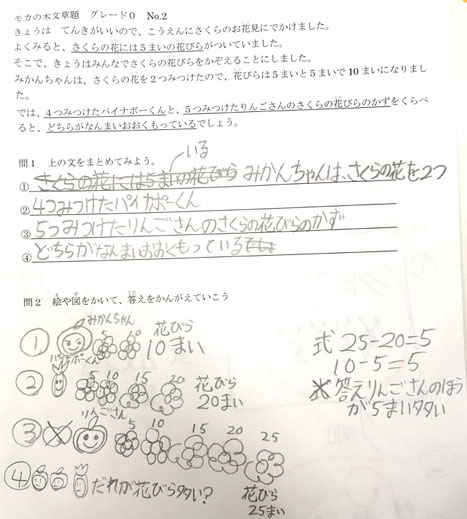 モカの木文章題 グレード0 No.2
きょうは てんきがいいので、こうえんにさくらのお花見にでかけました。
よくみると、さくらの花には5まいの花びらがついていました。
そこで、きょうはみんなでさくらの花びらをかぞえることにしました。
みかんちゃんは、さくらの花を2つみつけたので、花びらは5まいと5まいで10まいになりまし
た。
では、4つみつけたパイナポーくんと、5つみつけたりんごさんのさくらの花びらのかずをくらべ
ると、どちらがなんまいおおくもっているでしょう。
問1 上の文をまとめてみよう。
いる
① さくらの花には5まいの花びら みかんちゃんは、さくらの花を2つ
② 4つみつけたパイナポーくん
③ 5つみつけたりんごさんのさくらの花びらのかず
④ どちらがなんまいおおくもっているでしょ
問2 絵や図をかいて、答えをかんがえていこう
① みかんちゃん 5 10 花びら
10まい
② パイナポーくん 5 10 15 20 花びら
20まい
③ りんごさん 5 10 15 20 25
④ だれが花びら多い?
花びら
25まい
式 25-20=5
10-5=5
答えりんごさんのほう
が5まい多い